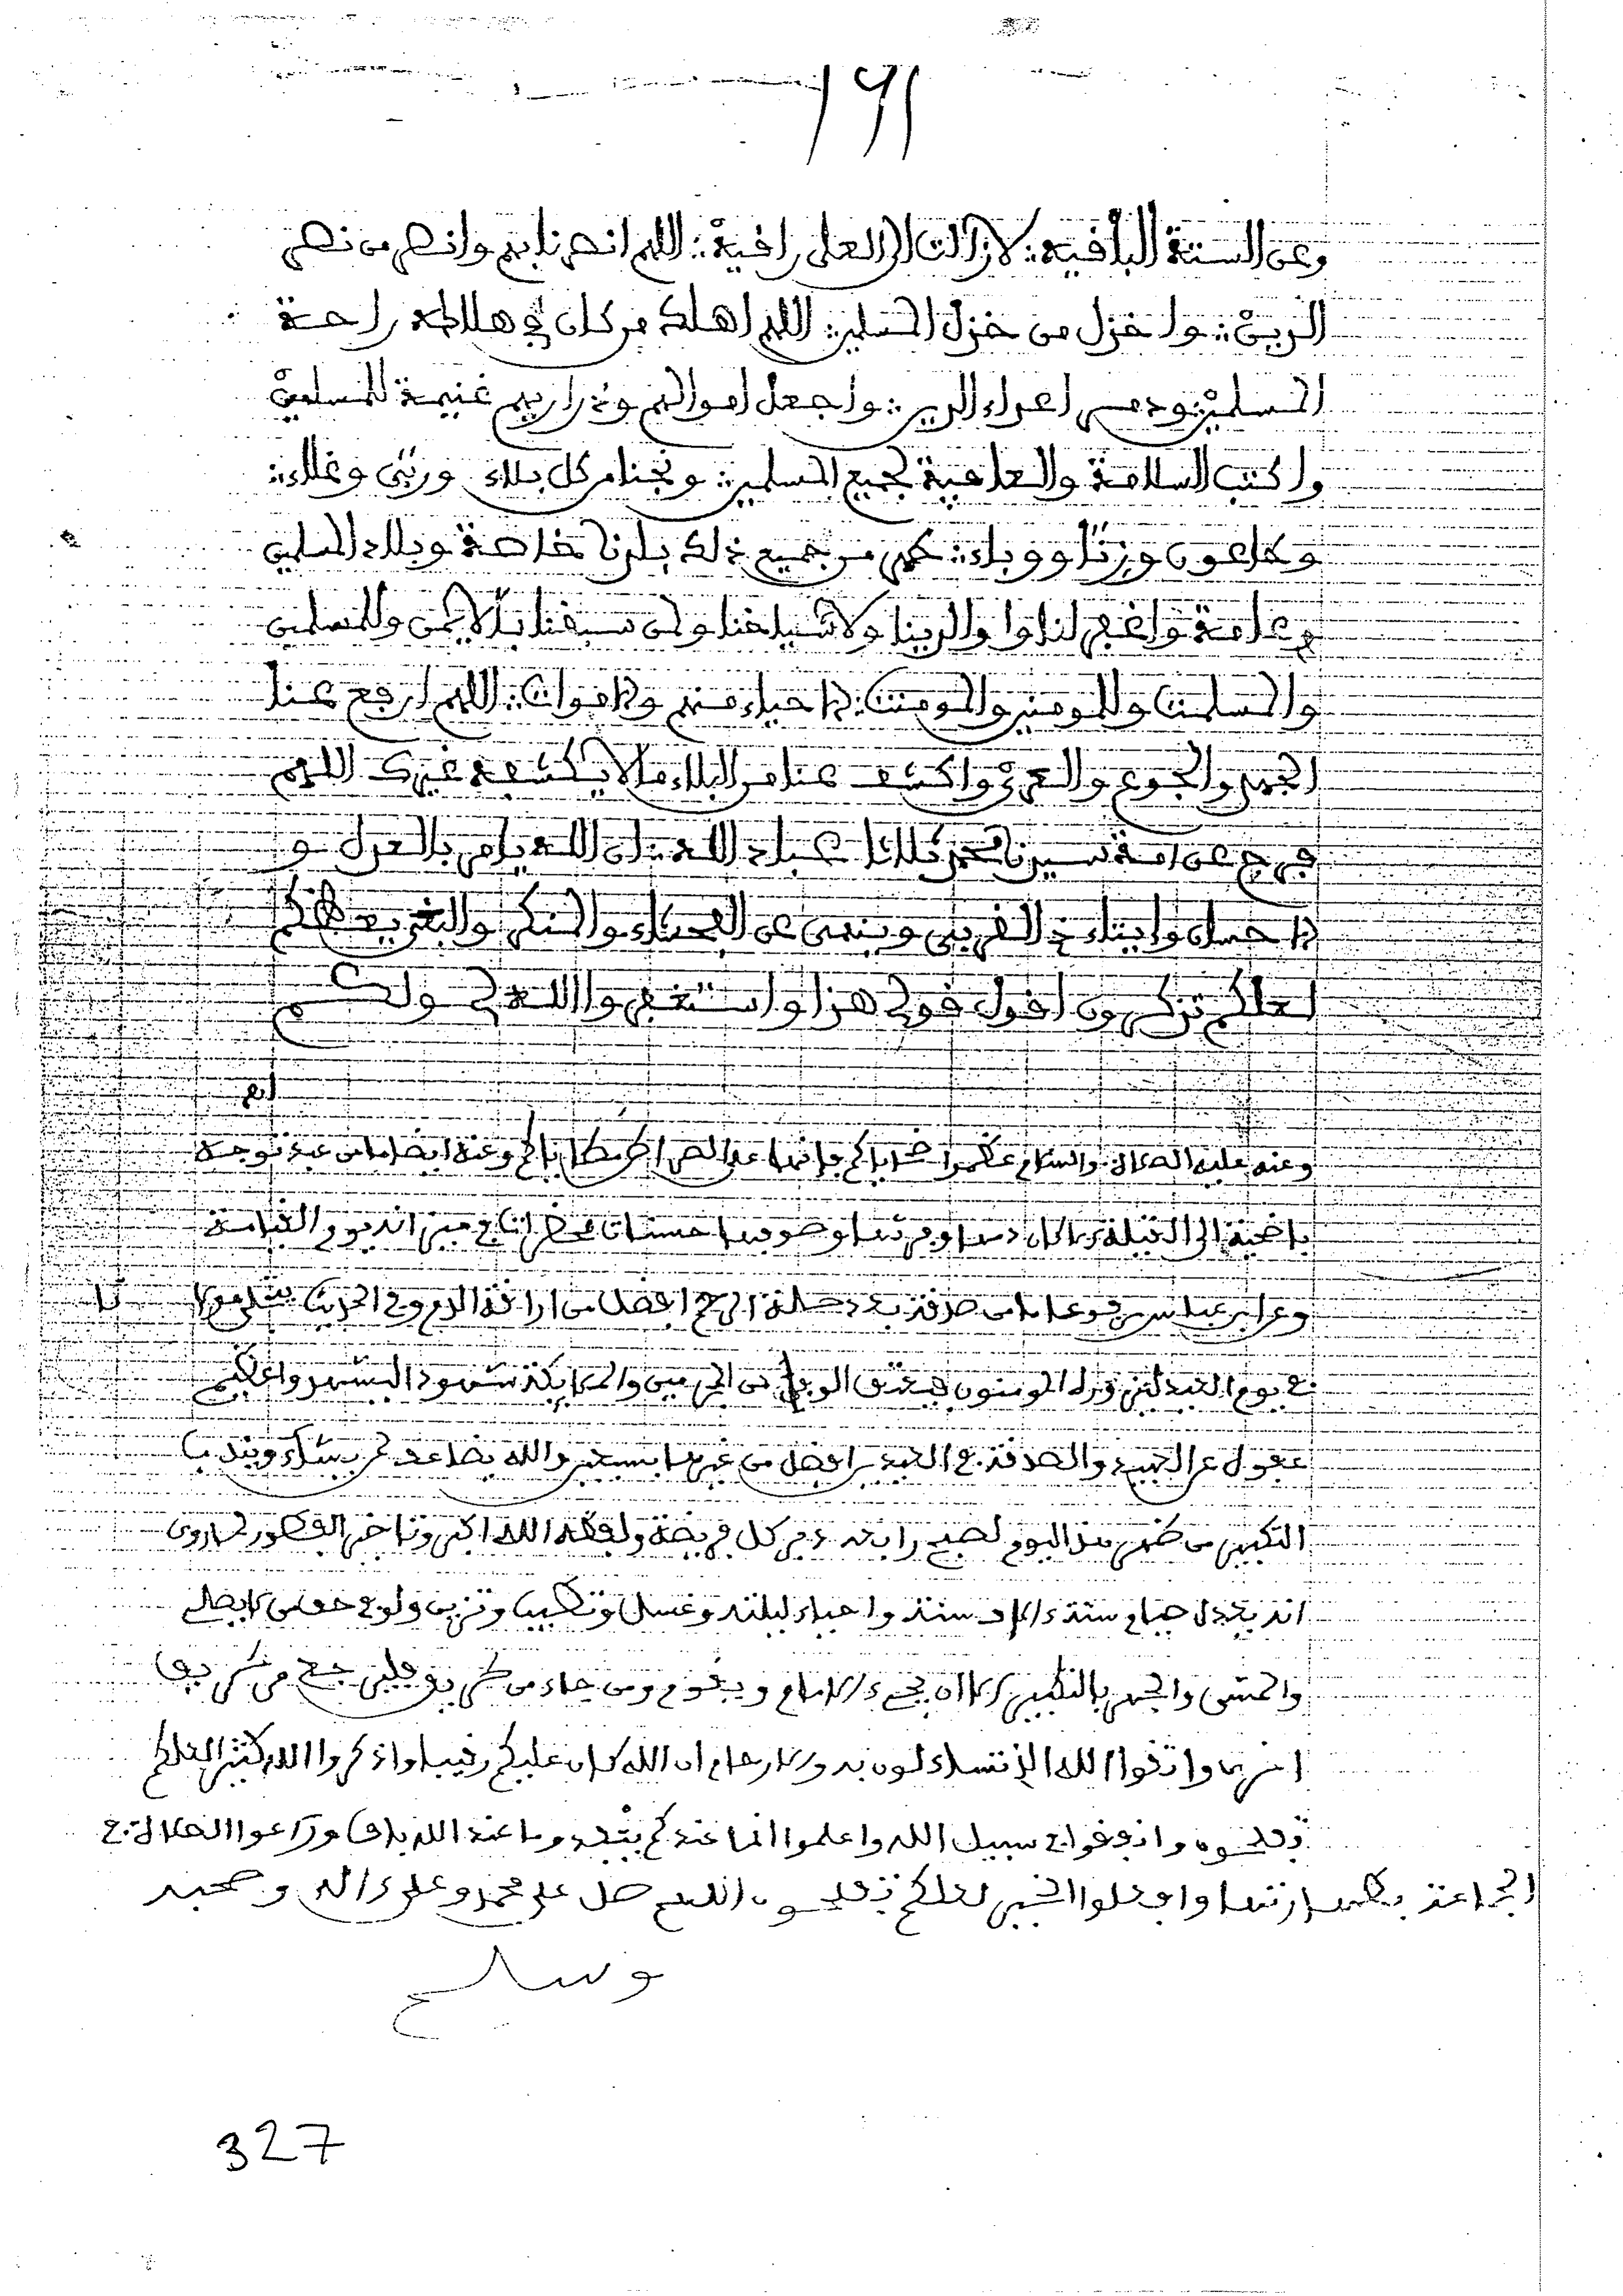 ١٩١
وعن الستة الباقية: لا زالت الى العلى راقية: اللهم انصرنا بهم وانصر من نصر
الدين: واخذل من خذل المسلمين: اللهم اهلك من كان في هلاكه راحة
المسلمين ودمر اعداء الدين: واجعل اموالهم وذراريهم غنيمة للمسلمين
واكتب السلامة والعافية لجميع المسلمين: ونجنا من كل بلاء وغلاء:
وطاعون وزنا ووباء: طهر من جميع ذلك بلدنا خاصة وبلاد المسلمين
عامة واغفر لنا ولوالدينا ولاشياخنا ولمن سبقنا بالايمن وللمسلمين
والمسلمت وللمومنين والمومنت: الاحياء منهم والاموات: اللهم ارفع عنا
الجهد والجوع والعري واكشف عنا من البلاء ما لا يكشفه غيرك اللهم
فرج عن امة سيدنا محمد ثلاثا عباد الله: ان الله يامر بالعدل و
الاحسان وايتاء ذي القربى وينهى عن الفحشاء والمنكر والبغي يعظكم
لعلكم تذكرون اقول قولي هذا واستغفروا الله لي ولكم
وعنه عليه الصلاة والسلام عظموا ضحاياكم فإنها على الصراط مطاياكم وعنه ايضا ما من عبد توجه
باضحية الى القبلة الا كان دمها وفرثها وصوفها حسنات محظرات في ميزانه يوم القيامة
وعن ابن عباس مرفوعا ما من صدقة بعد صلة الرحم افضل من اراقة الدم وفي الحديث
في يوم العيد المومنون من المجرمين
والصدقة في العيد افضل من غيرها بسبعين والله يضاعف لمن يشاء ويندب
التكبير من ظهر هذا اليوم لصبح رابعه دبر كل فريضة ولفظه الله اكبر وتاخير الفطور لما روى
انه يعدل صيام ستة ءالاف سنة واحياء ليلته وغسل وتطييب وتزين ولو في حق من لا يصلي
والمشي والجهر بالتكبير الا ان يجيء الامام ويقوم ومن جاء من طريق فليرجع من طريق
اخرى واتقوا الله الذي تساءلون به والارحام ان الله كان عليكم رقيبا واذكروا الله كثيرا لعلكم
تفلحون وانفقوا في سبيل الله واعلموا انما عندكم ينفد وما عند الله باق وراعوا الصلاة في
الجماعة بطهارتها وافعلوا الخير لعلكم تفلحون اللهم صل على محمد وعلى ءاله وصحبه
وسلم
327